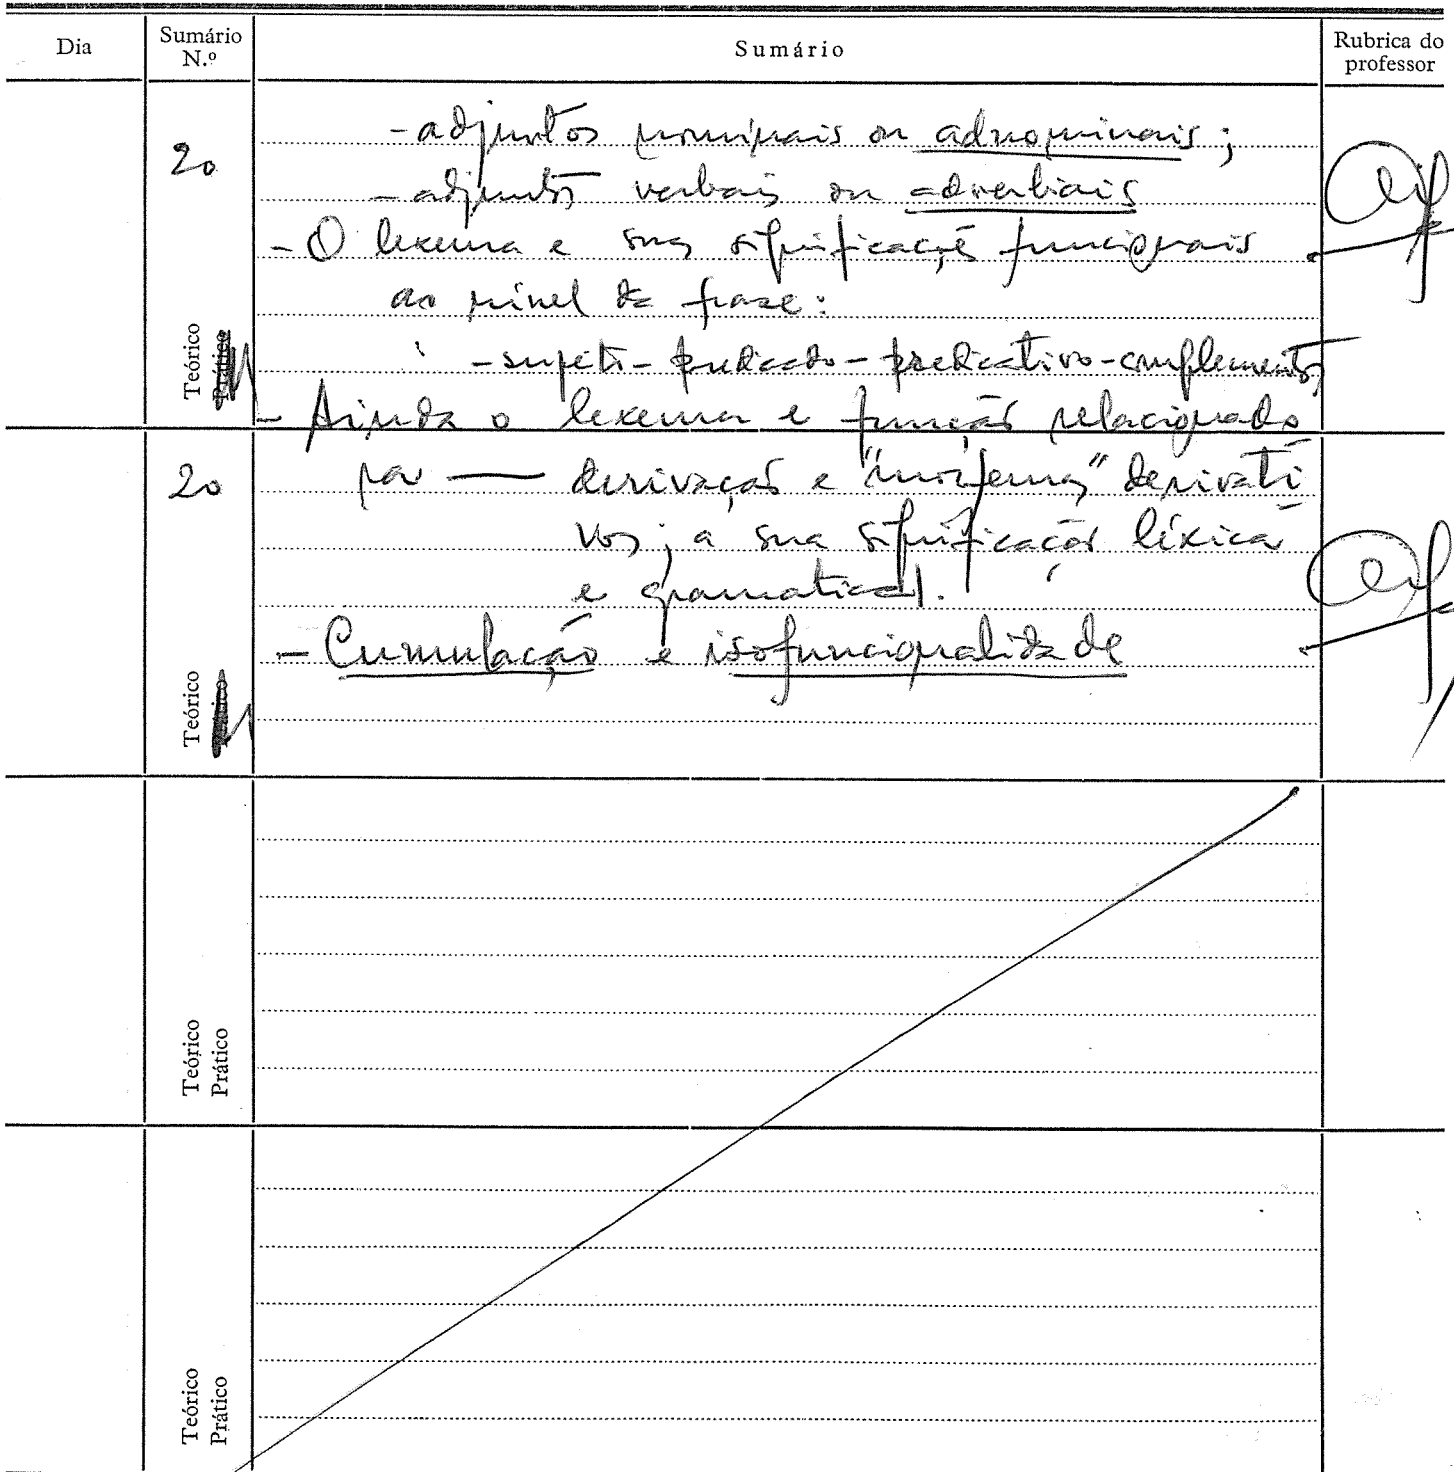 Dia
Sumário N.º
Sumário
Rubrica do professor
20
- adjuntos nominais ou adnominais;
- adjuntos verbais ou adverbiais
- O lexema e suas significações funcionais
ao nível da frase:
- sujeito - predicado - predicativo - complementos
Teórico
Prático
- Ainda o lexema e função relacionado
20
por — derivação e "morfemas" derivati
vos; a sua significação léxica
e gramatical.
- Cumulação e isofuncionalidade
Teórico
Teórico
Prático
Teórico
Prático